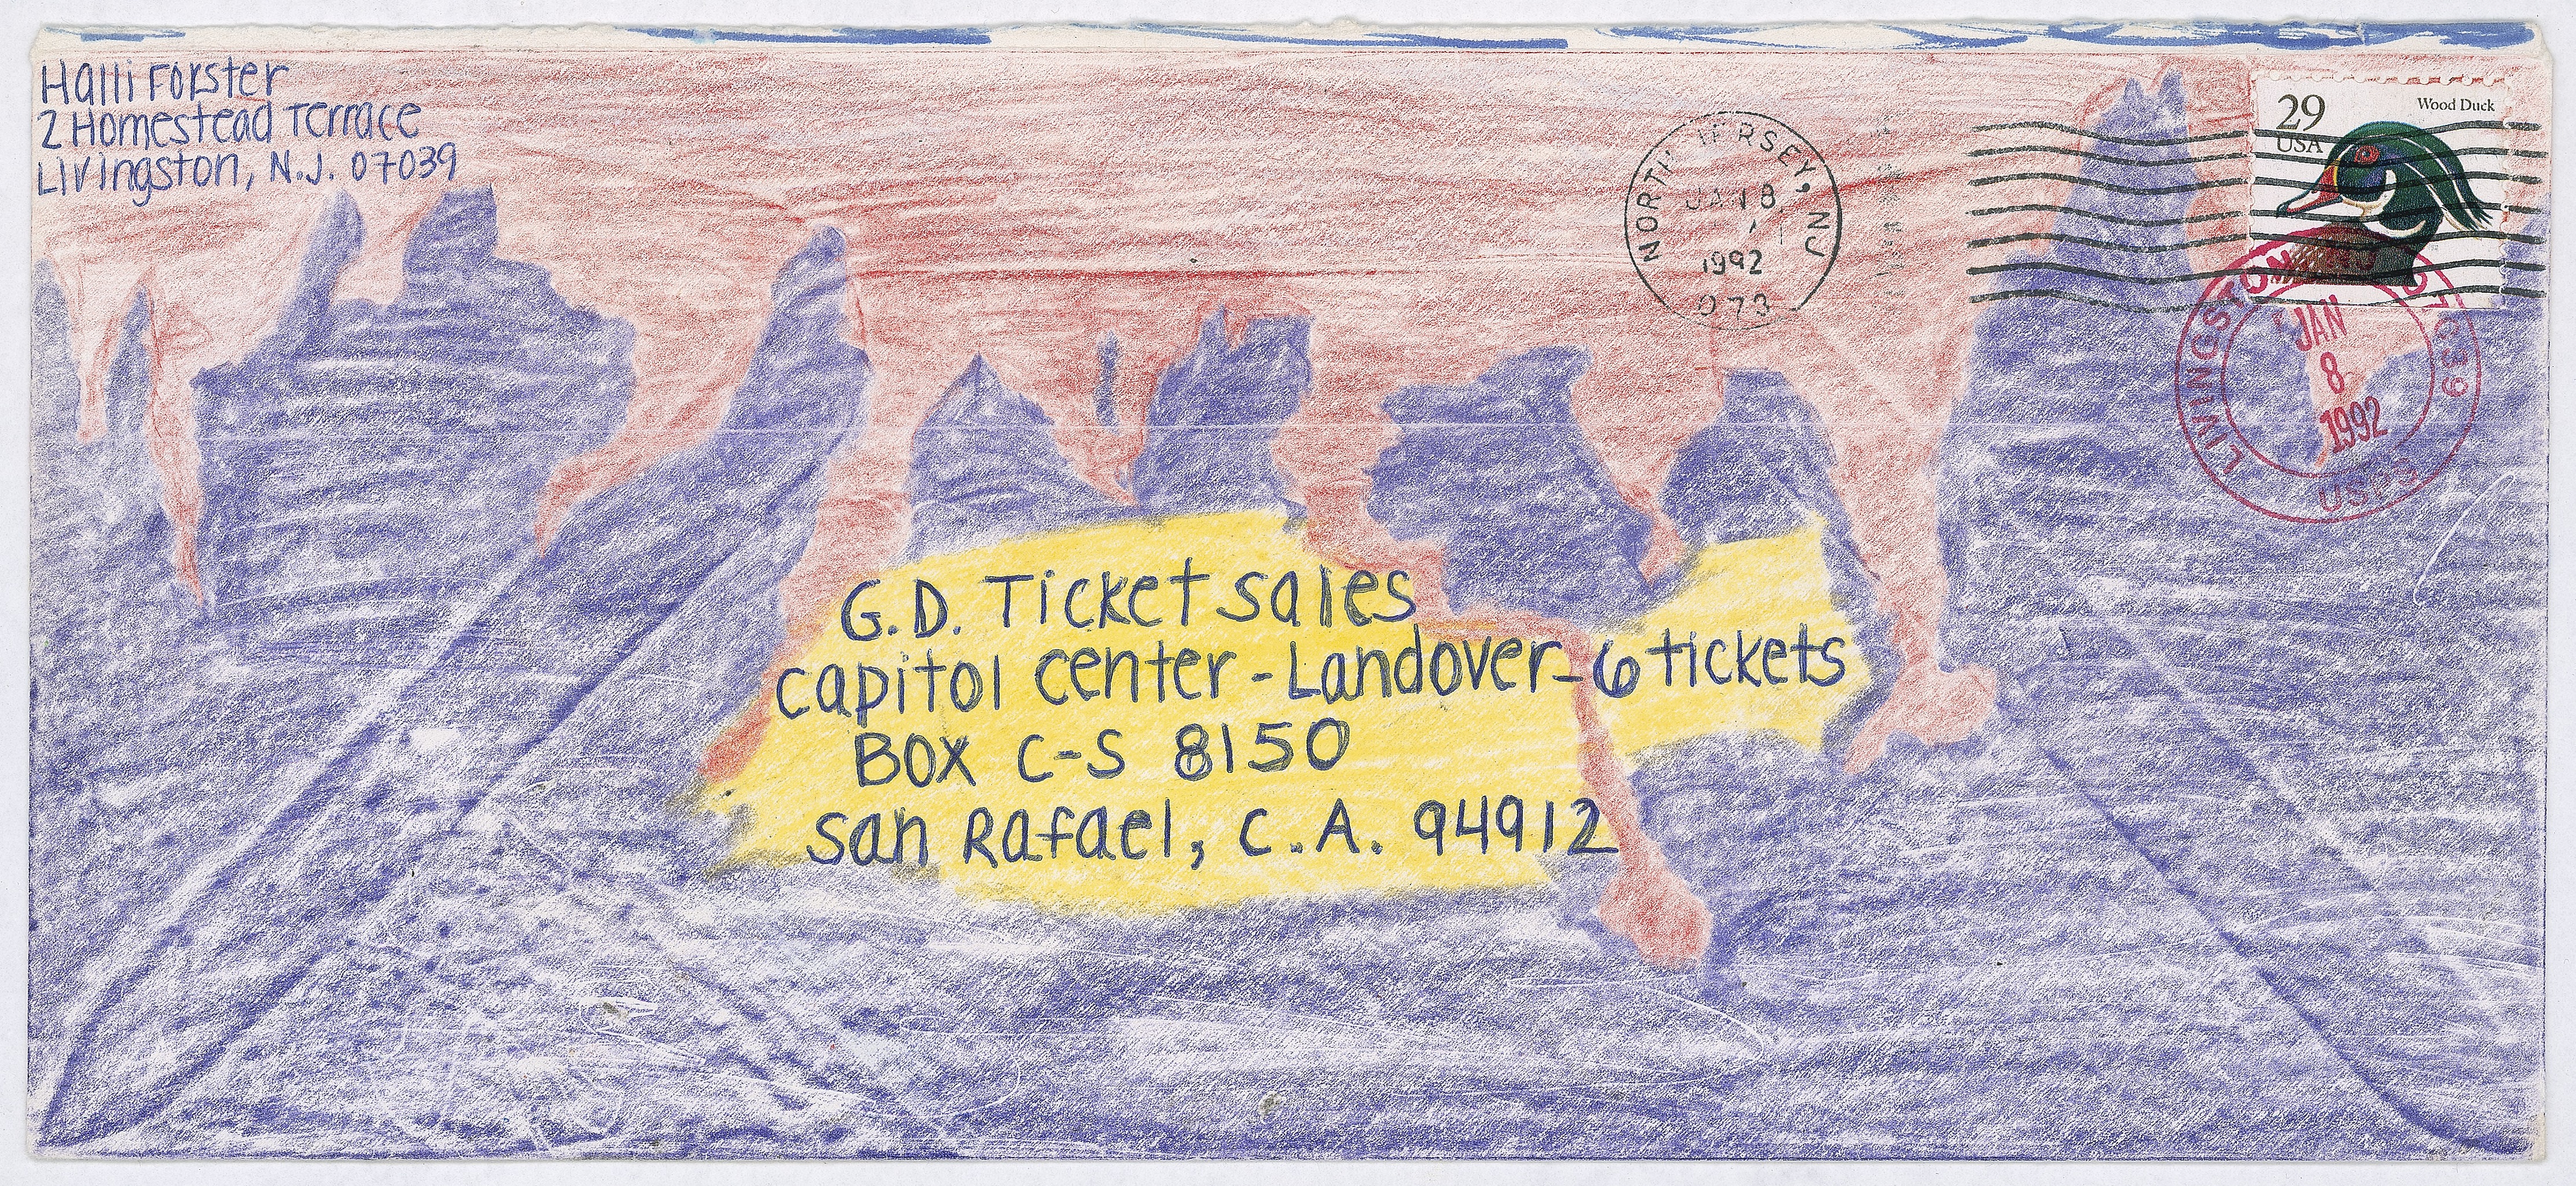 Halli Forster
2 Homestead Terrace
Livingston, N.J. 07039
NORTH JERSEY, NJ
JAN 8
1992
073
29
USA
Wood Duck
LIVINGSTON
JAN
8
1992
USPS
G.D. Ticket sales
capitol center - Landover - 6 tickets
BOX C-S 8150
San Rafael, C.A. 94912